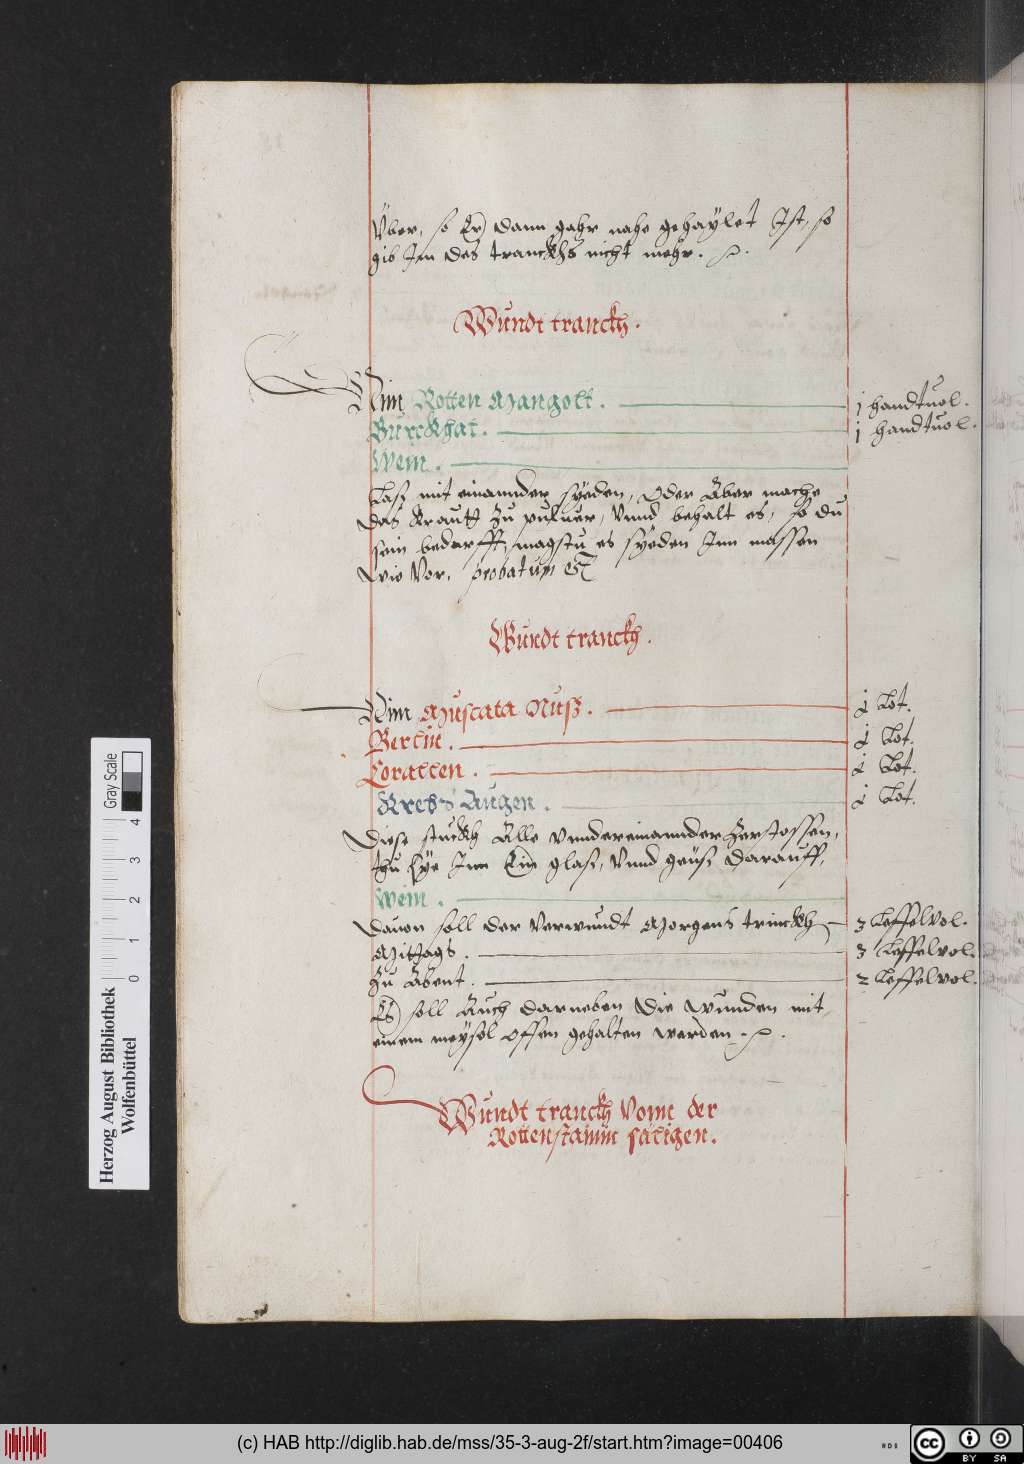 Über, so Er dann gahr nahe gehaÿlet Ist, so
gib Im des tranckhs nicht mehr.
Wundt tranckh.
Nim Rotten Mangolt. 1 handtuol.
Burckhat. 1 handtuol.
Wein.
Lasz mit einannder sÿeden, Oder Aber mache
das Krautt Zu puluer, Vnnd behalt es, so du
sein bedarfft, magstu es sÿeden Inn massen
wie Vor. probatum est
Wundt tranckh.
Nim Muscata Nusz. 1 Lot.
Berlin. 1 Lot.
Corallen. 1 Lot.
Krebs Augen. 1 Lot.
Diese stuckh Alle vndereinannder Zerstossen,
thu sÿe Inn Ein glasz, Vnnd geusz darauff,
Wein.
dauon soll der Verwundt Morgens trinckh 3 Leffelvol.
Mittags. 3 Leffelvol.
Zu Abent. 2 Leffelvol.
Es soll Auch darneben die wunden mit
einem meÿsel offen gehalten werden.
Wundt tranckh Vonn der
Rottenstainin säligen.
Herzog August Bibliothek
Wolfenbüttel
Gray Scale
0 1 2 3 4
(c) HAB http://diglib.hab.de/mss/35-3-aug-2f/start.htm?image=00406
cc BY SA